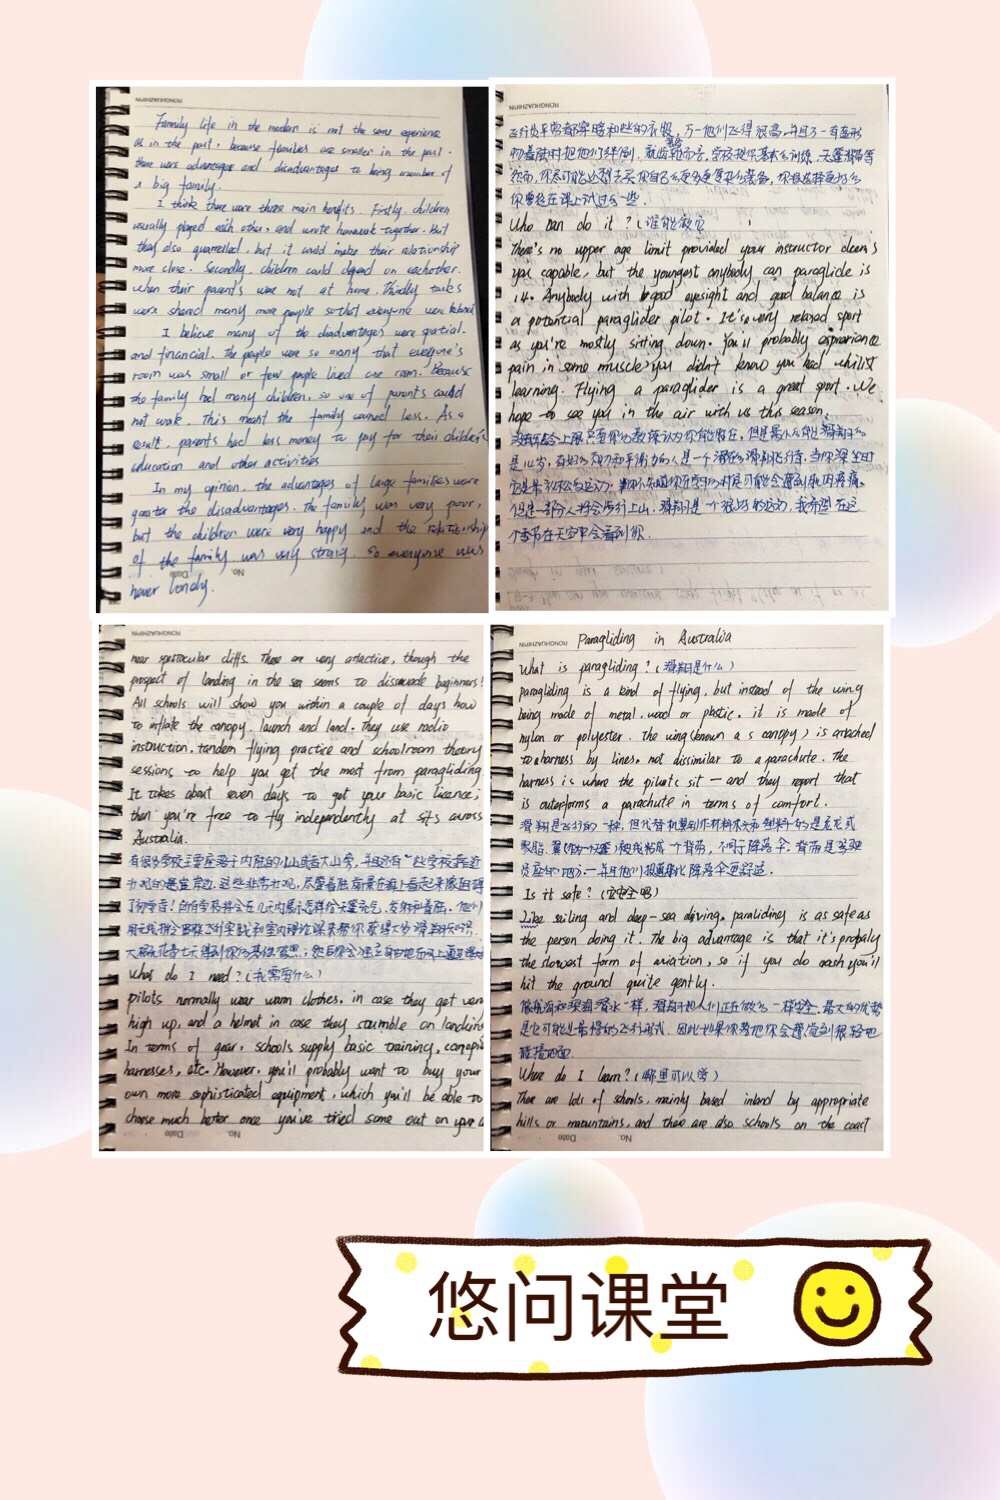 Family life in the modern is not the same experience
as in the past, because families are smaller in the past.
there were advantages and disadvantages to being a number of
a big family.
I think there were three main benefits. Firstly, children
usually played each other, and wrote homework together. But
they also quarrelled, but it could make their relationship
more close. Secondly, children could depend on eachother.
when their parent's were not at home. Thirdly tasks
were shared many more people so that everyone were
I believe many of the disadvantages were spatial.
and financial. The people were so many that everyone's
room was small or few people lived one room. Because
the family had many children, so one of parents could
not work. This meant the family earned less. As a
result, parents had less money to pay for their children's
education and other activities
In my opinion, the advantages of large families were
the disadvantages. The family was very poor,
but the children were very happy and the relationship
of the family was very strong. so everyone was
never lonely.
No.
Date
RONGHUAZHIPIN
飞行员平常都穿暖和些的衣服,万一他们飞得很高,并且万一
物着陆时把他们绊倒.就齿轮而言,学校提供基本的训练、天蓬背带等
然而,你尽可能
你曾经在课上试过会一些.
Who can do it? (谁能做它
There's no upper age limit provided your instructor deems
you capable, but the youngest anybody can paraglide is
14. Anybody with good eyesight and good balance is
a potential paraglider pilot. It's a very relaxed sport
as you're mostly sitting down. You'll probably experience
pain in some muscles you didn't know you had whilst
learning. Flying a paraglider is a great sport. We
hope to see you in the air with us this season.
没有年龄上限只要你的教练认为你有能力胜任,但是最小的能滑翔的
是14岁,有好的视力和平衡力的人是一个潜在的滑翔飞行者,当你深坐时
它是非常轻松的运动,
但是一部分人将会步行上山. 滑翔是一个很好的运动,我希望在这
个季节在天空中会看到你.
RONGHUAZHIPIN
near spectacular cliffs. These are very attactive, though the
prospect of landing in the sea seems to dissuade beginners!
All schools will show you within a couple of days how
to inflate the canopy, launch and land. They use radio
instruction, tandem flying practice and schoolroom theory
sessions to help you get the most from paragliding
It takes about seven days to get your basic licence;
then you're free to fly independently at sits across
Australia.
有很多学校主要座落于内陆的小山或者大山旁,并且还有一些学校靠近
壮观的悬崖岸边,这些非常壮观,尽管着陆前景在海上看起来像阻碍
了初学者!所有学校将会在几天内展示怎样给天蓬充气、发射和着陆.他们
用无线指令
大概花费七天得到你的基础
What do I need? (我需要什么)
pilots normally wear warm clothes, in case they get very
high up, and a helmet in case they stumble on landing
In terms of gear, schools supply basic training, canopi
harnesses, etc. However, you'll probably want to buy your
own more sophisticated equipment, which you'll be able to
choose much better once you've tried some out on your a
No.
Date
RONGHUAZHIPIN
Paragliding in Australia
What is paragliding? (滑翔是什么)
paragliding is a kind of flying, but instead of the wing
being made of metal, wood or plastic, it is made of
nylon or polyester. The wing (known a s canopy) is attached
to a harness by lines, not dissimilar to a parachute. The
harness is where the pilots sit — and they report that
is outerforms a parachute in terms of comfort.
滑翔是飞行的一种,但代替机翼制作材料木头和塑料的是尼龙或
聚脂.翼(作为一天蓬)被线粘成一个背带,不同于降落伞.背带是驾驶
员座的地方—并且他们报道
Is it safe? (它安全吗)
Like sailing and deep-sea diving, paraliding is as safe as
the person doing it. The big advantage is that it's probaly
the slowest form of aviation, so if you do crash you'll
hit the ground quite gently.
像帆海和深海潜水一样,滑翔于把人们正在做的一样安全.最大的优势
是它可能是最慢的飞行形式,因此如果你坠地你会撞到很轻地
碰撞地面.
Where do I learn? (哪里可以学)
There are lots of schools, mainly based inland by appropriate
hills or mountains, and there are also schools on the coast
No.
Date
悠问课堂